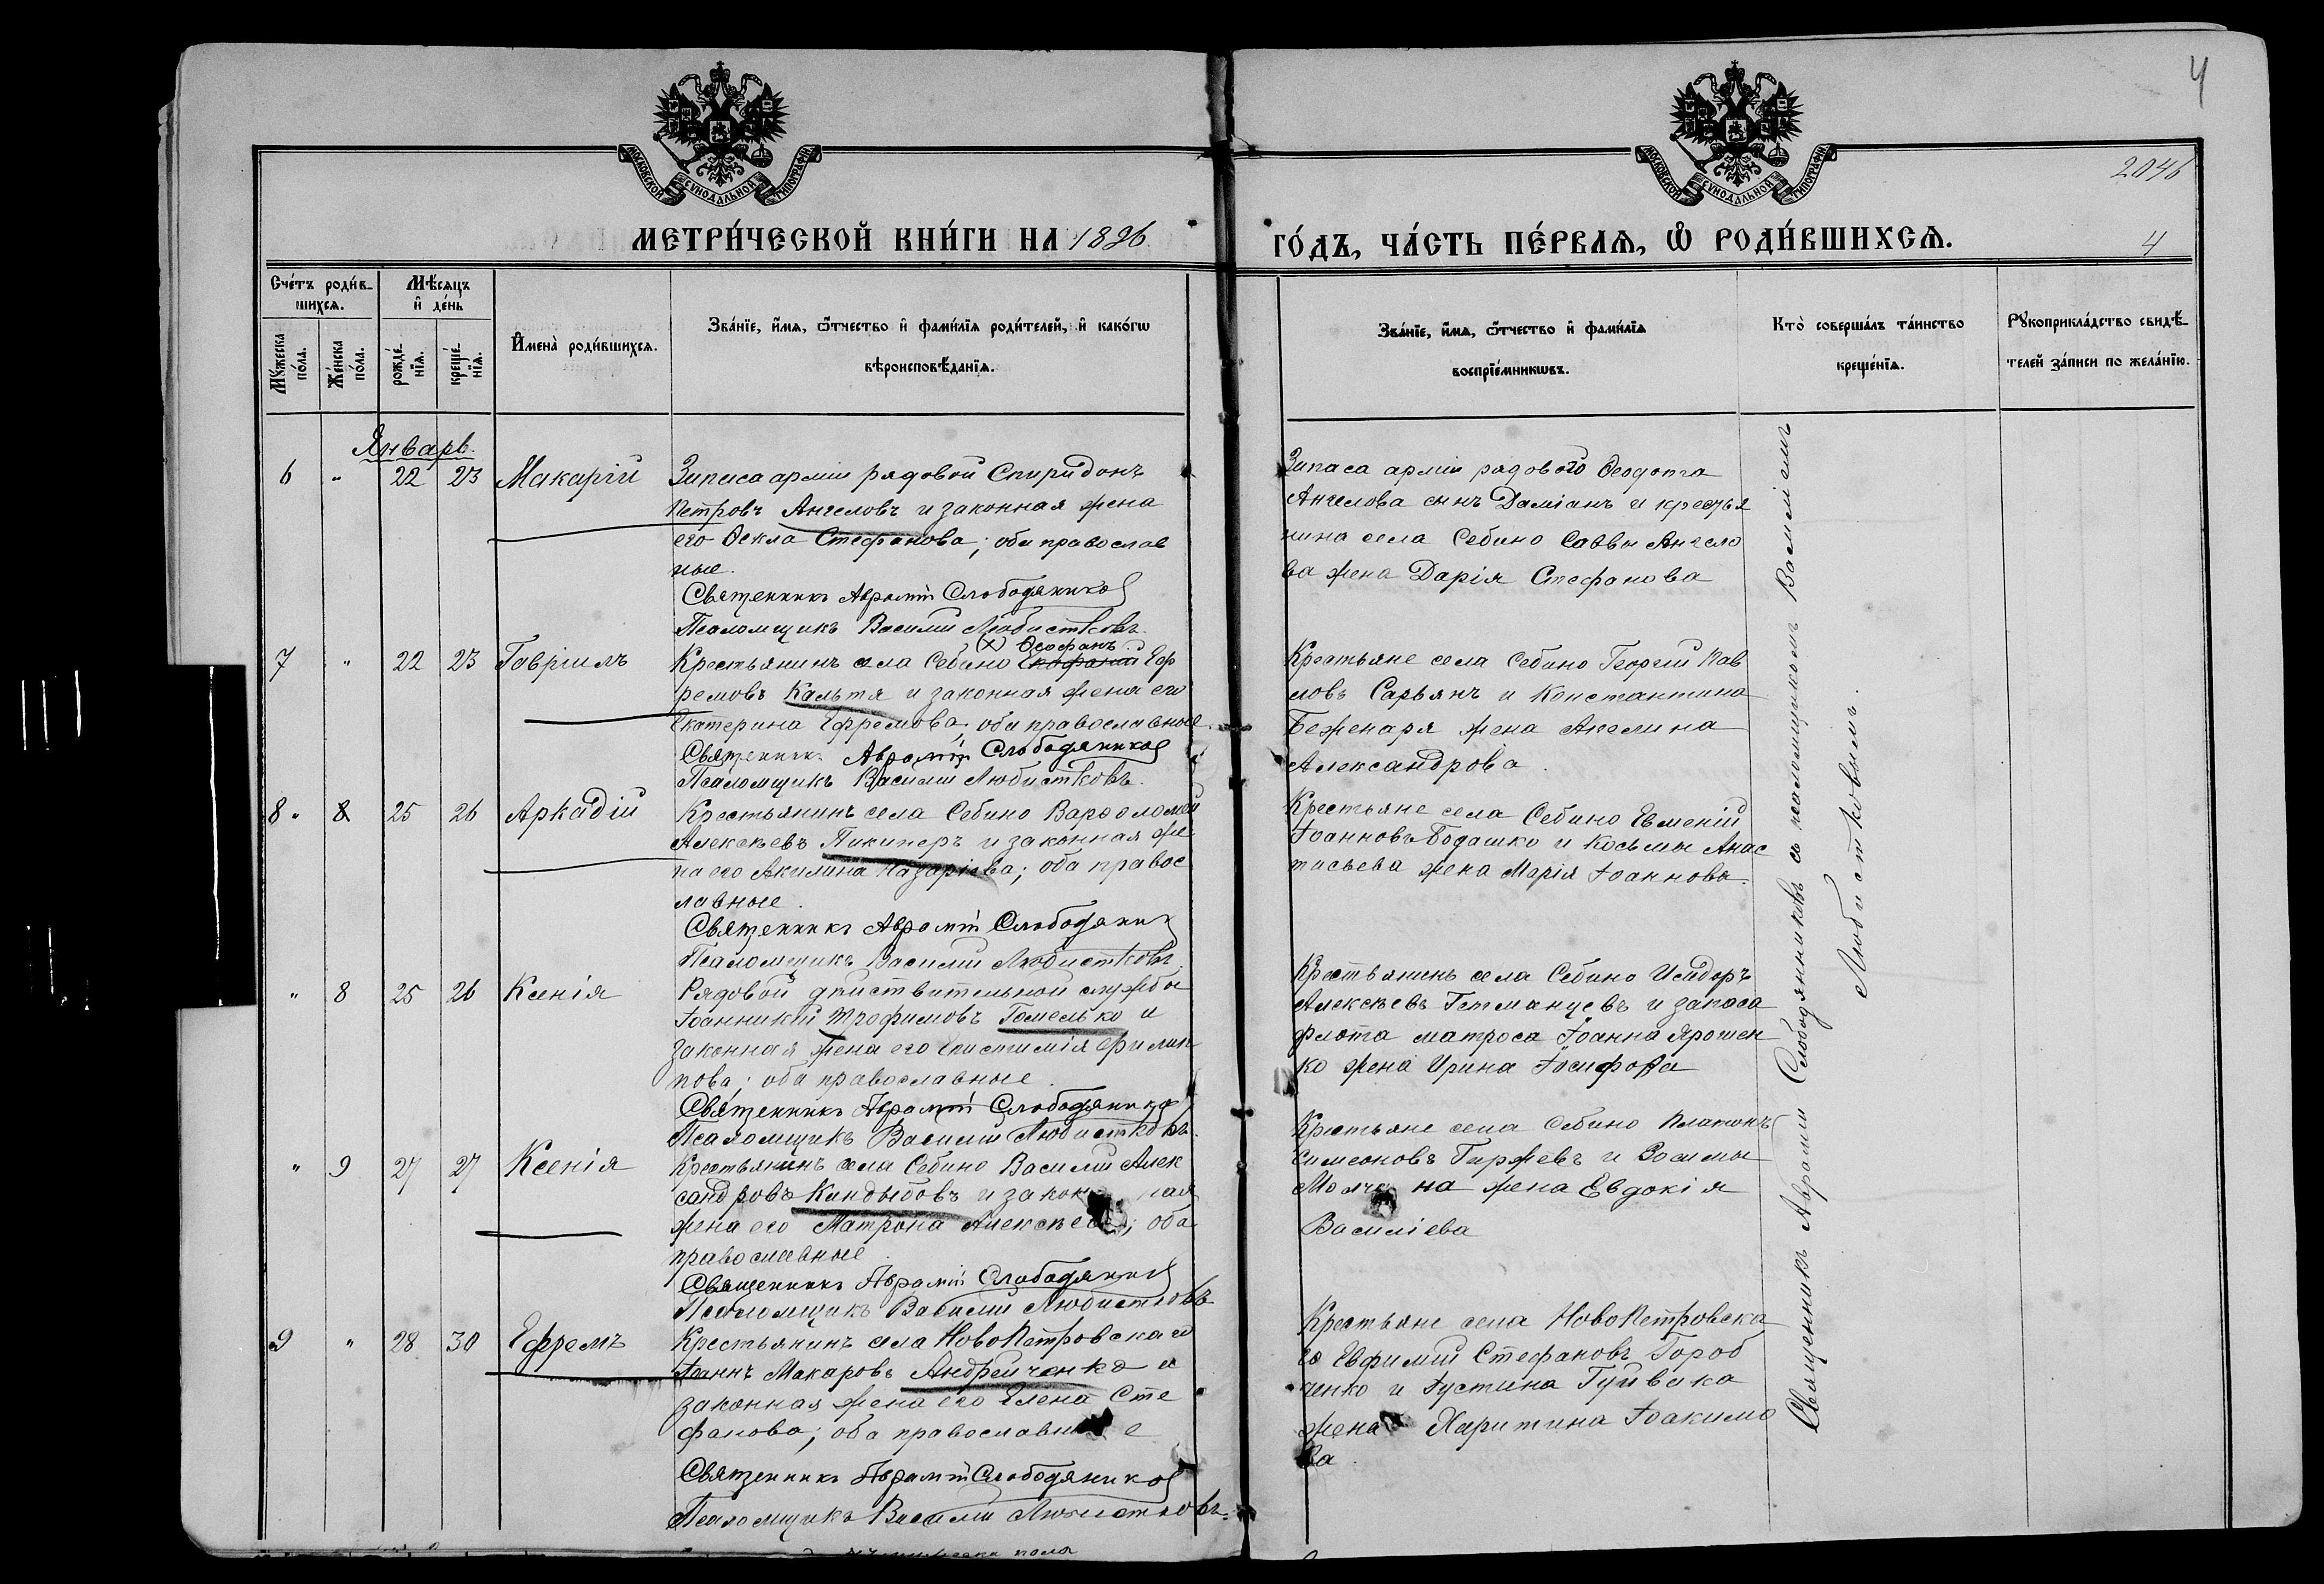 4
МОСКОВСКОЙ СѴНОДАЛЬНОЙ ТИПОГРАФІИ
МОСКОВСКОЙ СѴНОДАЛЬНОЙ ТИПОГРАФІИ
2046
МЕТРИ́ЧЕСКОЙ КНИ́ГИ НА 1896
ГО́ДЪ, ЧА́СТЬ ПЕ́РВАѦ, Ѡ҆ РОДИ́ВШИХСѦ.
4
Сче́тъ роди́в-
шихсѧ.
Мꙋ́жеска по́ла.
Же́нска по́ла.
Мѣ́сяцъ
и҆ де́нь
рожде́-
нїѧ.
креще́-
нїѧ.
И҆мена̀ роди́вшихсѧ.
Зва́нїе, и҆́мѧ, ѻ҆́тчество и҆ фами́лїѧ роди́телей, и҆ како́гѡ
вѣроисповѣ́данїѧ.
Зва́нїе, и҆́мѧ, ѻ҆́тчество и҆ фами́лїѧ
воспрїе́мникѡвъ.
Кто̀ соверша́лъ та́инство
креще́нїѧ.
Рꙋкоприкла́дство свидѣ́-
телей за́писи по жела́нїю.
Январь.
6 " 22 23 Макарій
Запаса арміи рядовой Спиридонъ
Петровъ Ангеловъ и законная жена
его Ѳекла Стефанова; оба православ
ные.
Священникъ Аврамій Слободяниковъ
Псаломщикъ Василій Любистковъ.
Запаса арміи рядового Ѳеодота
Ангелова сынъ Даміанъ и крестья
нина села Себино Саввы Ангело
ва жена Дарія Стефанова
7 " 22 23 Гавріилъ
(х) Ѳеофанъ
Крестьянинъ села Себино Еф
ремовъ Кальтя и законная жена его
Екатерина Ефремова, оба православные.
Священникъ Аврамій Слободяниковъ
Псаломщикъ Василій Любистковъ.
Крестьяне села Себино Георгій Пав
ловъ Сарьянъ и Константина
Беженаря жена Акелина
Александрова.
8 " 8 25 26 Аркадій
Крестьянинъ села Себино Варѳоломей
Алексѣевъ Пикинеръ и законная же
на его Акилина Назаріева; оба правос
лавные.
Священникъ Аврамій Слободяник
Псаломщикъ Василій Любистковъ.
Крестьяне села Себино Евменій
Іоанновъ Бодашко и Косьмы Анас
тасьева жена Марія Іоаннова.
" 8 25 26 Ксенія
Рядовой дѣйствительной службы
Іоанникій Трофимовъ Гомелько и
законная жена его Епистимія Филип
пова; оба православные.
Священникъ Аврамій Слободяников
Псаломщикъ Василій Любистковъ.
Крестьянинъ села Себино Исидоръ
Алексѣевъ Гетманцевъ и запаса
флота матроса Іоанна Ярошен
ко жена Ирина Іосифова
" 9 27 27 Ксенія
Крестьянинъ села Себино Василій Алек
сандровъ Кандыбовъ и законная
жена его Матрона Алексѣева; оба
православные.
Священникъ Аврамій Слободяников
Псаломщикъ Василій Любистковъ
Крестьяне села Себино Платонъ
Симеоновъ Гиржевъ и Зосимы
на жена Евдокія
Василіева
9 " 28 30 Ефремъ
Крестьянинъ села НовоПетровскаго
Іоаннъ Макаровъ Андрейченко и
законная жена его Елена Сте
фанова; оба православные
Священникъ Аврамій Слободяников
Псаломщикъ Василій Любистковъ.
Крестьяне села НовоПетровска
го Евфимій Стефановъ Город
ченко и Іустина Гуйвака
жена Харитина Іоакимо
ва
Священникъ Аврамій Слободяниковъ съ псаломщикомъ Василіемъ
Любистковымъ.